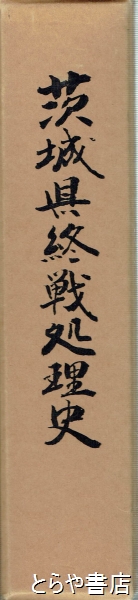 茨城県終戦処理史
とらや書店